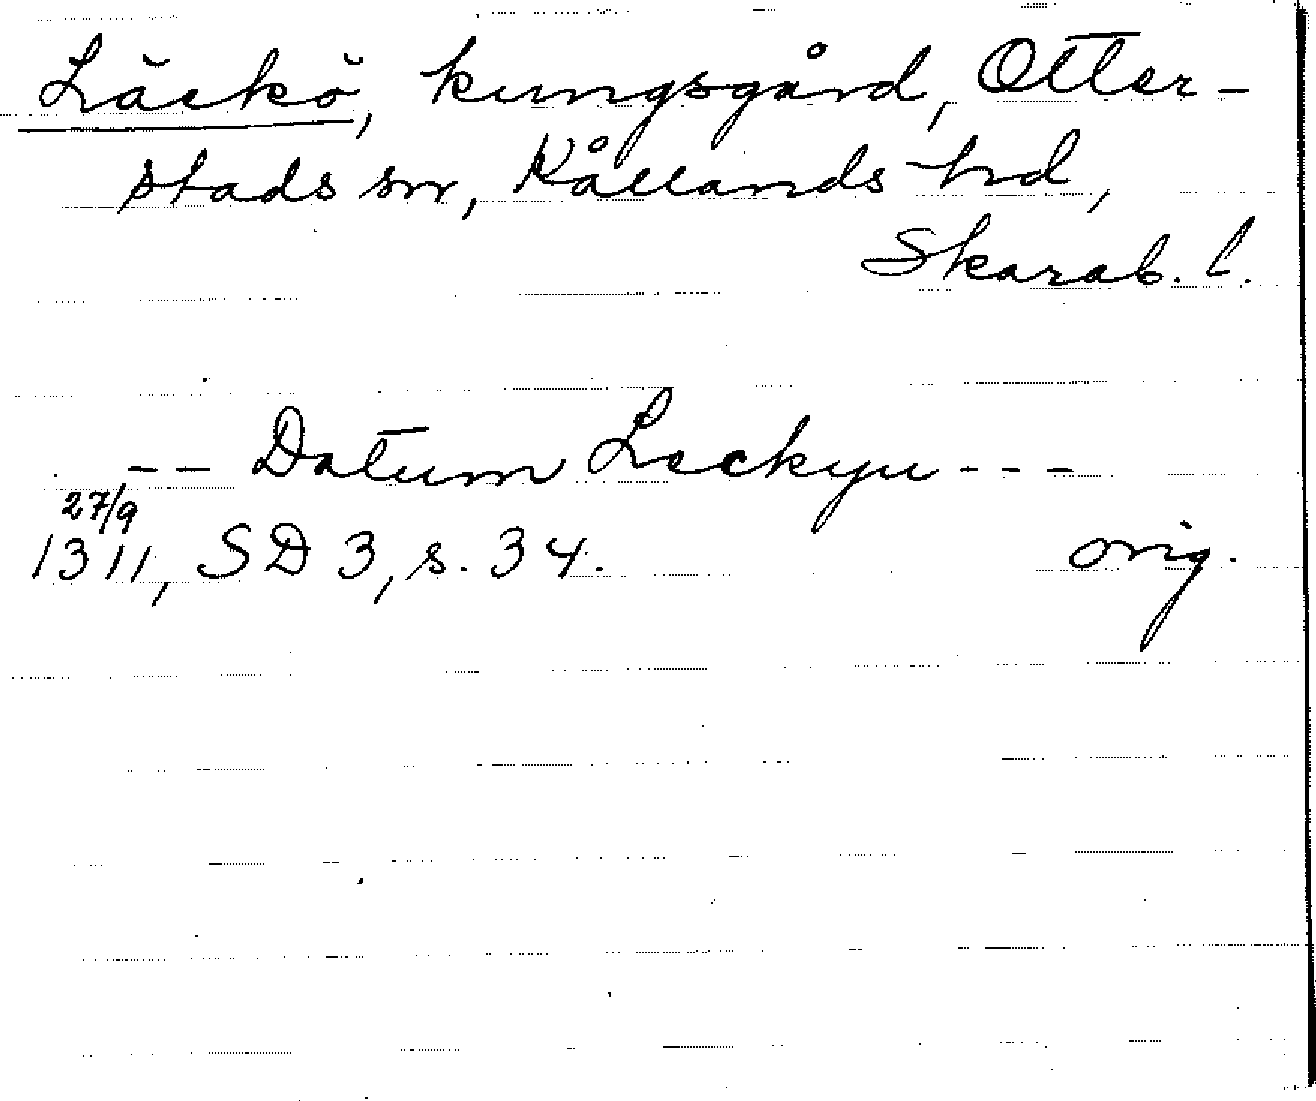 Läckö, kungsgård, Otter-
stads sn, Kållands hd,
Skarab. l.
-- Datum Leckyu ---
27/9
1311, SD 3, s. 34. orig.